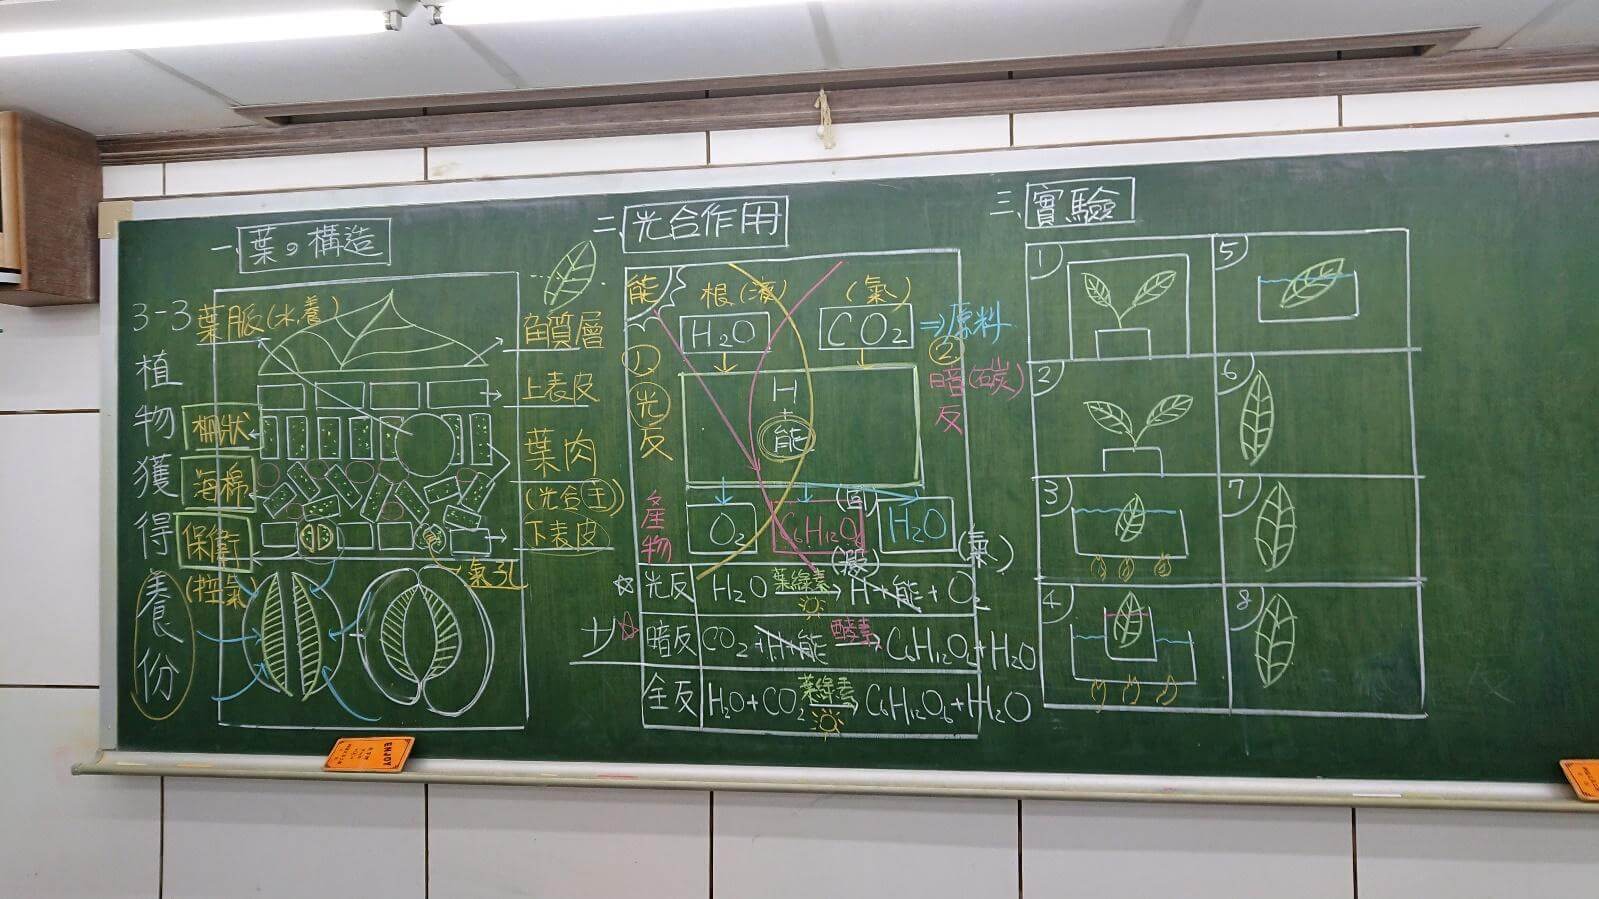 3-3
植物獲得養份
一、葉の構造
葉脈(水,養)
角質層
上表皮
柵狀
葉肉
(光合主)
海綿
保衛
(控氣)
下表皮
氣孔
二、光合作用
能
根(液)
(氣)
H2O
CO2
⇒原料
①光反
②暗(碳)反
H
+
能
產物
O2
C6H12O6
H2O
(固)
(液)
(氣)
☆光反 H2O 葉綠素→ H+能+O2
☆暗反 CO2+H+能 酵素→ C6H12O6+H2O
全反 H2O+CO2 葉綠素→ C6H12O6+H2O
三、實驗
1
2
3
4
5
6
7
8
ENJOY